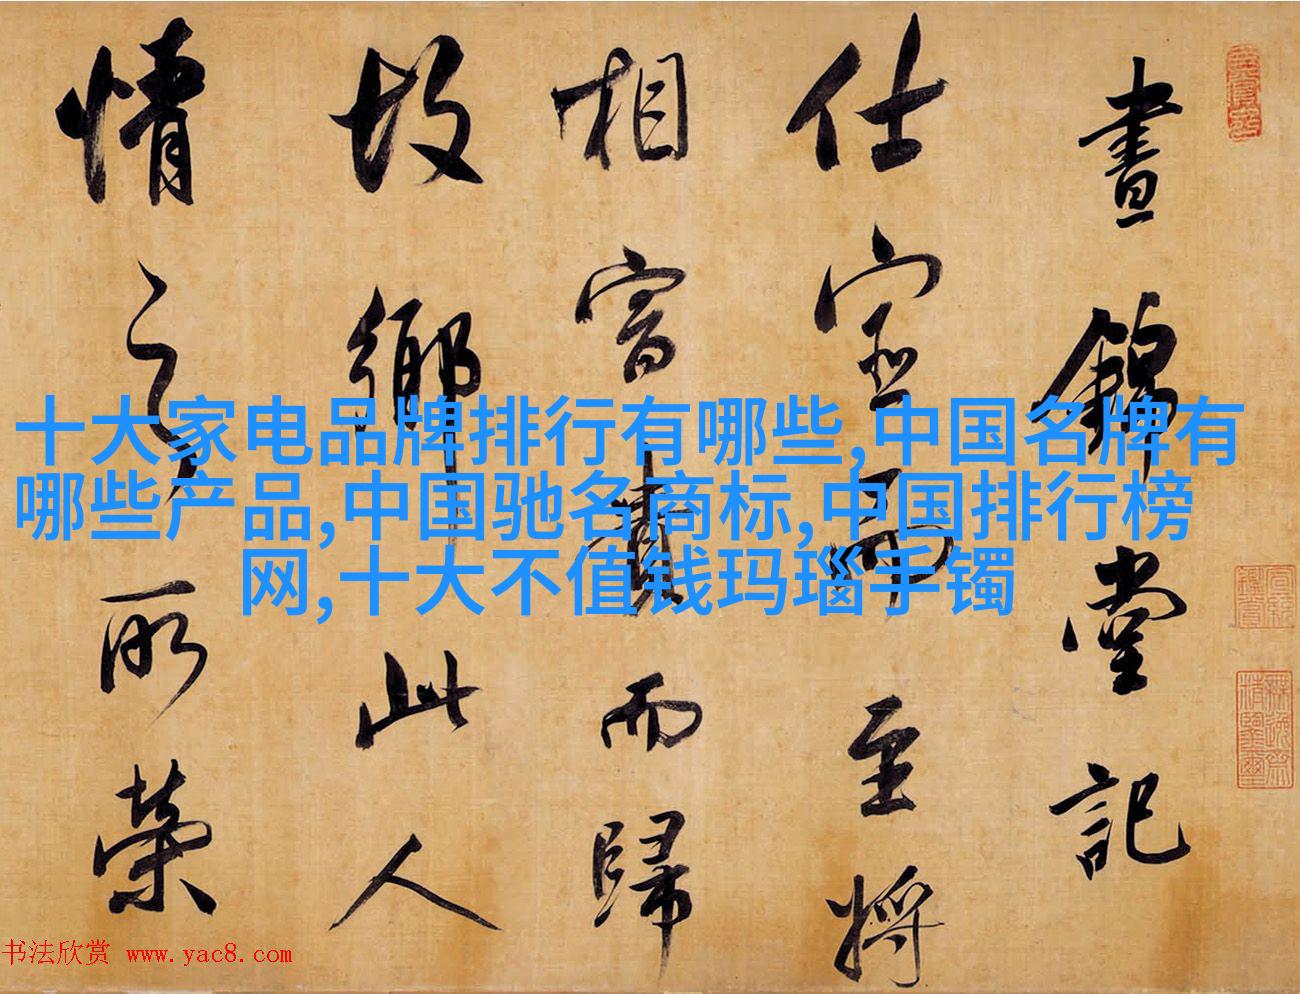 十大家电品牌排行有哪些,中国名牌有
哪些产品,中国驰名商标,中国排行榜
网,十大不值钱玛瑙手镯
晝錦堂記
仕宦而至將
相富貴而歸
故鄉此人
情之所榮
书法欣赏 www.yac8.com